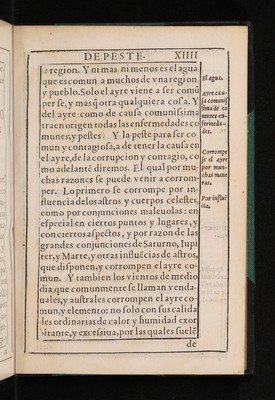 DE PESTE. XIIII
a region. Y ni mas ni menos es el agua
que es comun a muchos de vna region,
y pueblo. Solo el ayre viene a ser comũ
per se, y mas q̃ otra qualquiera cosa. Y
del ayre como de causa comunissima
traen origen todas las enfermedades co
munes, y pestes. Y la peste para ser co
mun y contagiosa, a de tener la causa en
el ayre, de la corrupcion y contagio, co
mo adelante diremos. El qual por mu
chas razones se puede venir a corrom
per. Lo primero se corrompe por in-
fluencia de los astros y cuerpos celestes,
como por conjunciones maleuolas: en
especial en ciertos puntos y lugares, y
con ciertos aspectos, y por razon de las
grandes conjunciones de Saturno, Iupi
ter, y Marte, y otras influẽcias de astros,
que disponen, y corrompen el ayre co-
mun. Y tambien los vientos de medio
dia, que comunmente se llaman venda-
uales, y australes corrompen el ayre co-
mun, y elemento: no solo con sus calida
des ordinarias de calor y humidad exor
bitante, y excessiua, por las quales suelẽ
de
El agua.
Ayre cau-
sa comunis
sima de co
munes en-
fermeda-
des.
Corrompe
se el ayre
por mu-
chas mane
ras.
Por influẽ
cia.